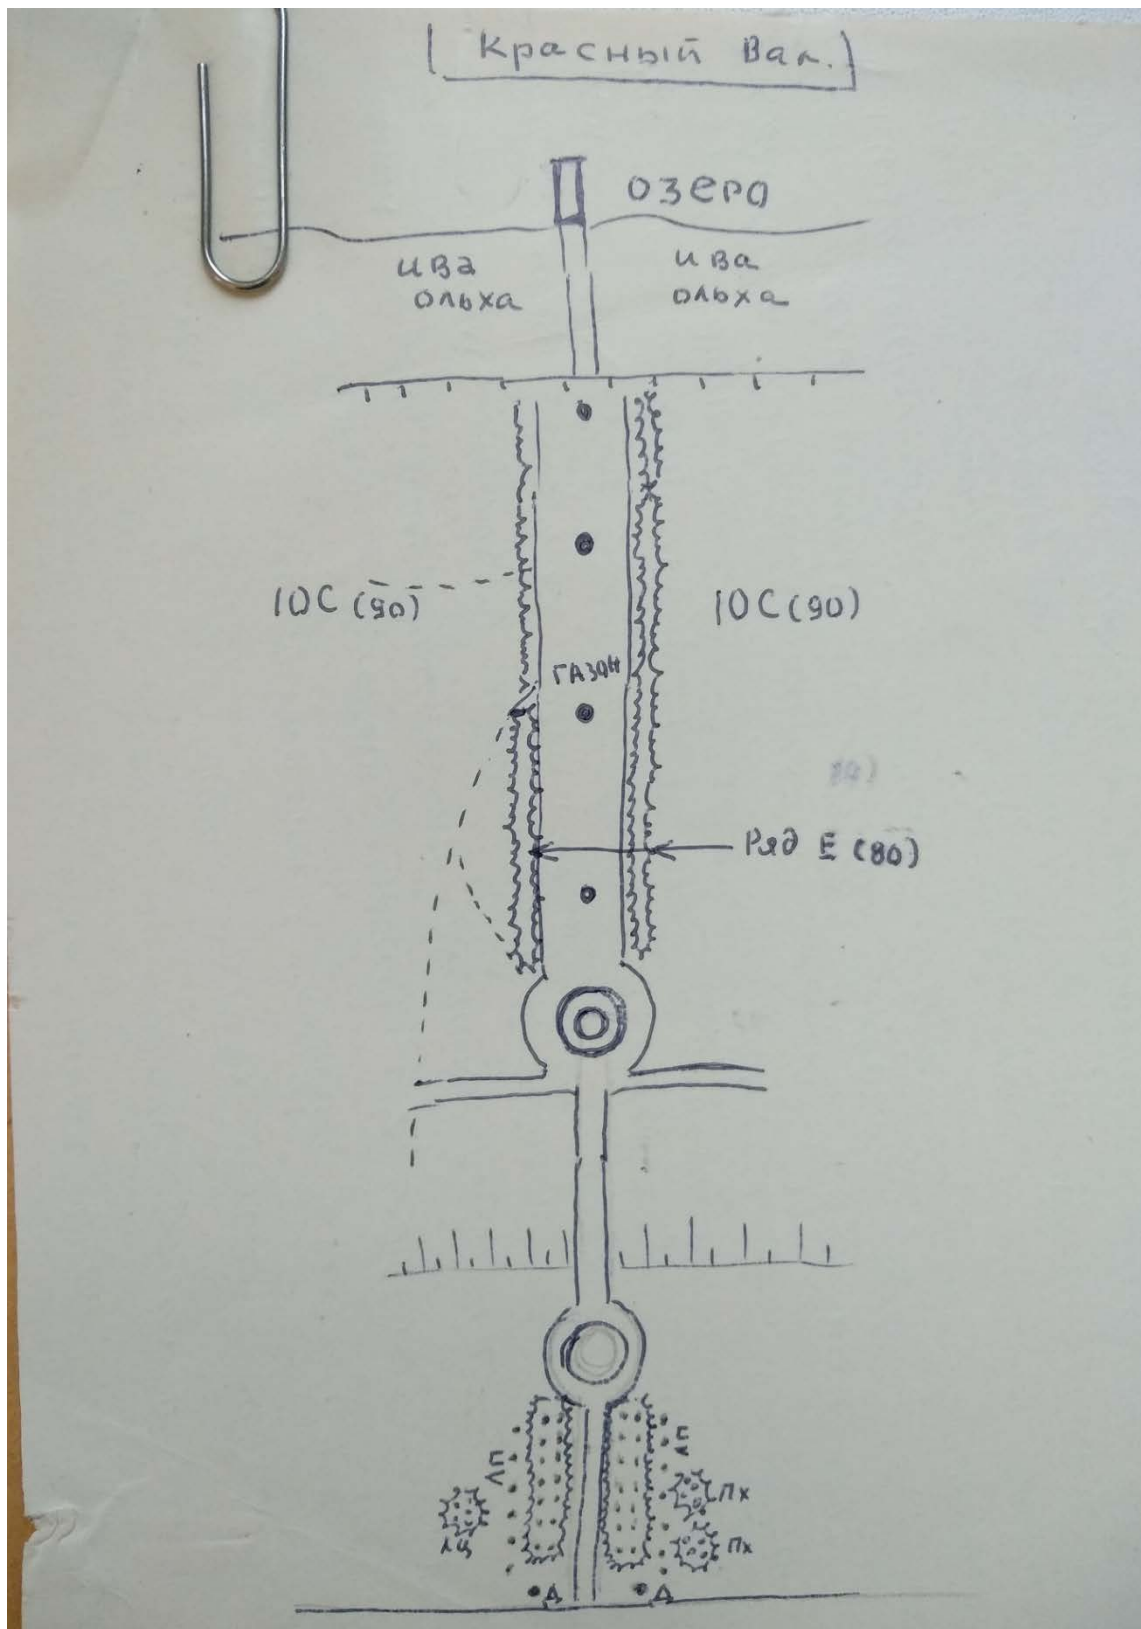 Красный Вал.
озера
ива
ольха
ива
ольха
10С (90)
10С (90)
газон
Ряд Е (80)
Пх
Пх
Д
Д